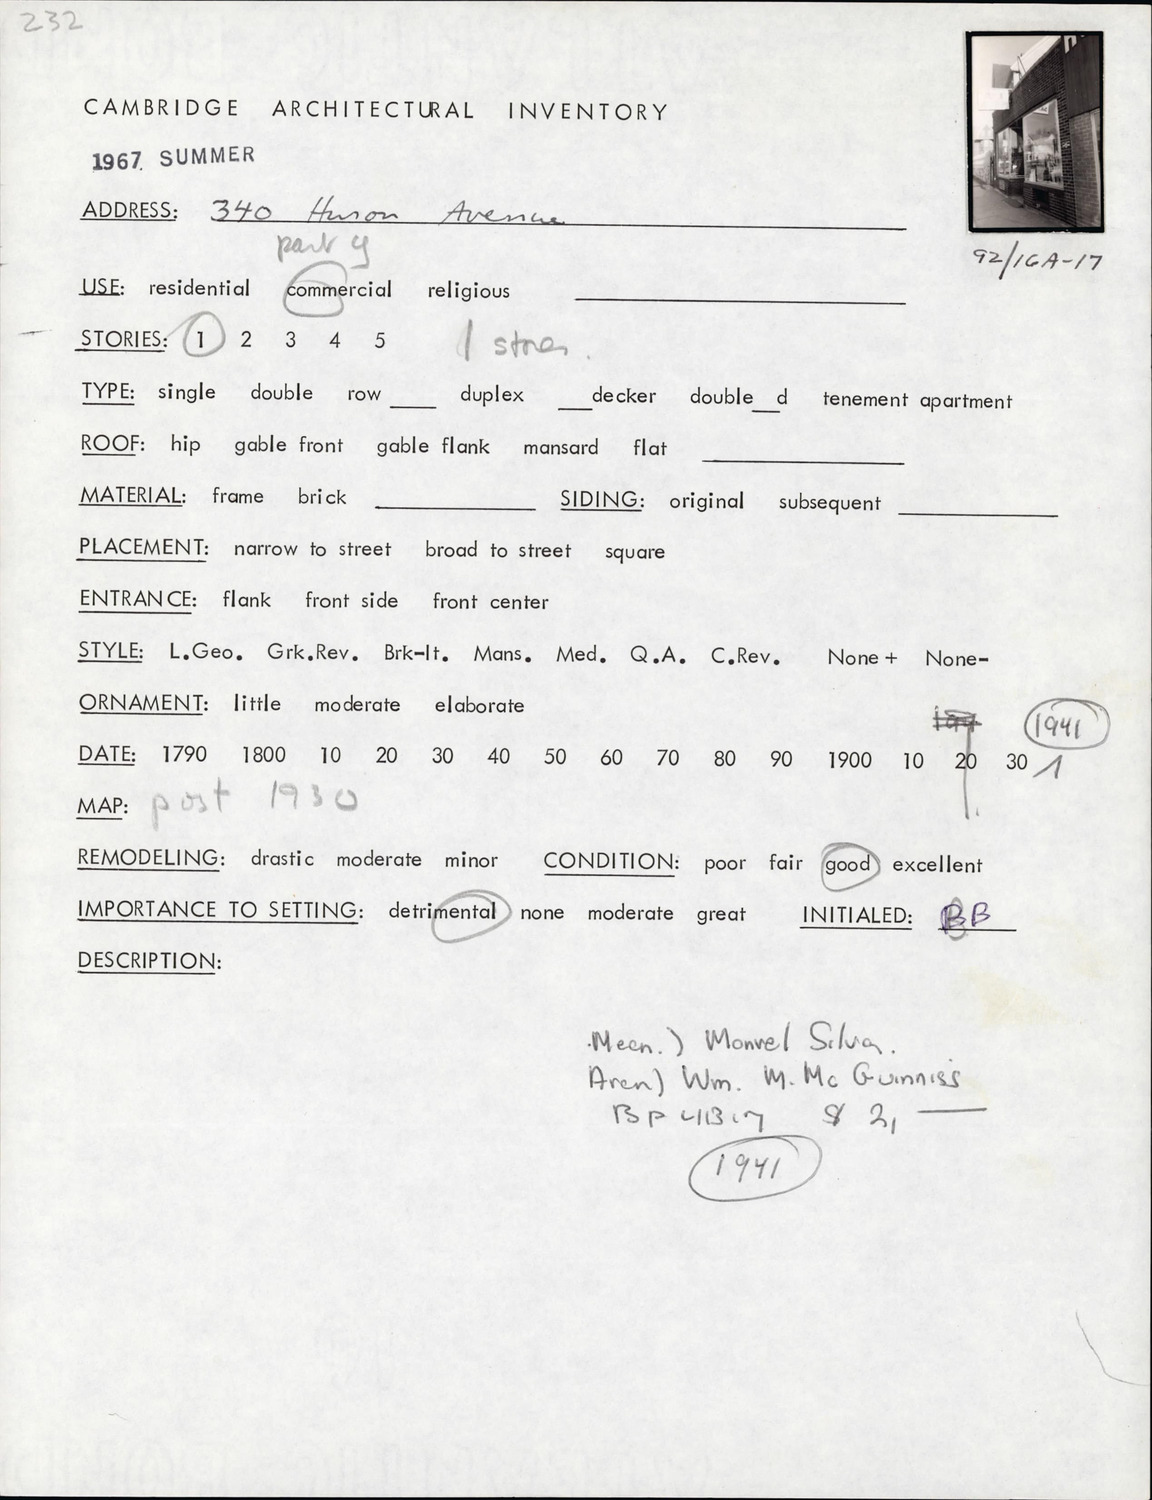 232
CAMBRIDGE ARCHITECTURAL INVENTORY
1967 SUMMER
ADDRESS: 340 Huron Avenue
92/1GA-17
part of
USE: residential commercial religious
STORIES: 1 2 3 4 5 1 store.
TYPE: single double row ___ duplex ___decker double__d tenement apartment
ROOF: hip gable front gable flank mansard flat
MATERIAL: frame brick SIDING: original subsequent
PLACEMENT: narrow to street broad to street square
ENTRANCE: flank front side front center
STYLE: L.Geo. Grk.Rev. Brk-It. Mans. Med. Q.A. C.Rev. None+ None-
ORNAMENT: little moderate elaborate
1941
DATE: 1790 1800 10 20 30 40 50 60 70 80 90 1900 10 20 30
MAP: post 1930
REMODELING: drastic moderate minor CONDITION: poor fair good excellent
IMPORTANCE TO SETTING: detrimental none moderate great INITIALED: BB
DESCRIPTION:
Silva.
Wm. M. Mc Guinniss
BP $ 2,
1941